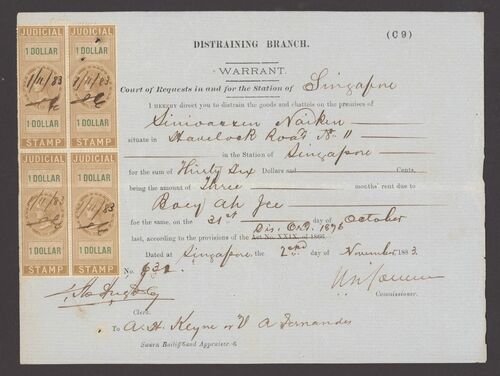 (C9)
DISTRAINING BRANCH.
WARRANT.
Court of Requests in and for the Station of Singapore
I HEREBY direct you to distrain the goods and chattels on the premises of
Sinivarzen Naiken
situate in Havelock Road No 11
in the Station of Singapore
for the sum of Thirty Six Dollars and Cents,
being the amount of Three months' rent due to
Boey Ah Jee
for the same, on the 31st day of October
Dis. Ord. 1876
last, according to the provisions of the Act No. XXIX. of 1866.
Dated at Singapore the 2nd day of November 1883.
No. 632
Commissioner.
Clerk.
To A. H. Keyne or V A Fernandes
Sworn Bailiff and Appraiser
JUDICIAL
1 DOLLAR
1/11/83
STAMP
JUDICIAL
1 DOLLAR
1/11/83
STAMP
JUDICIAL
1/11/83
1 DOLLAR
STAMP
JUDICIAL
1/11/83
1 DOLLAR
STAMP